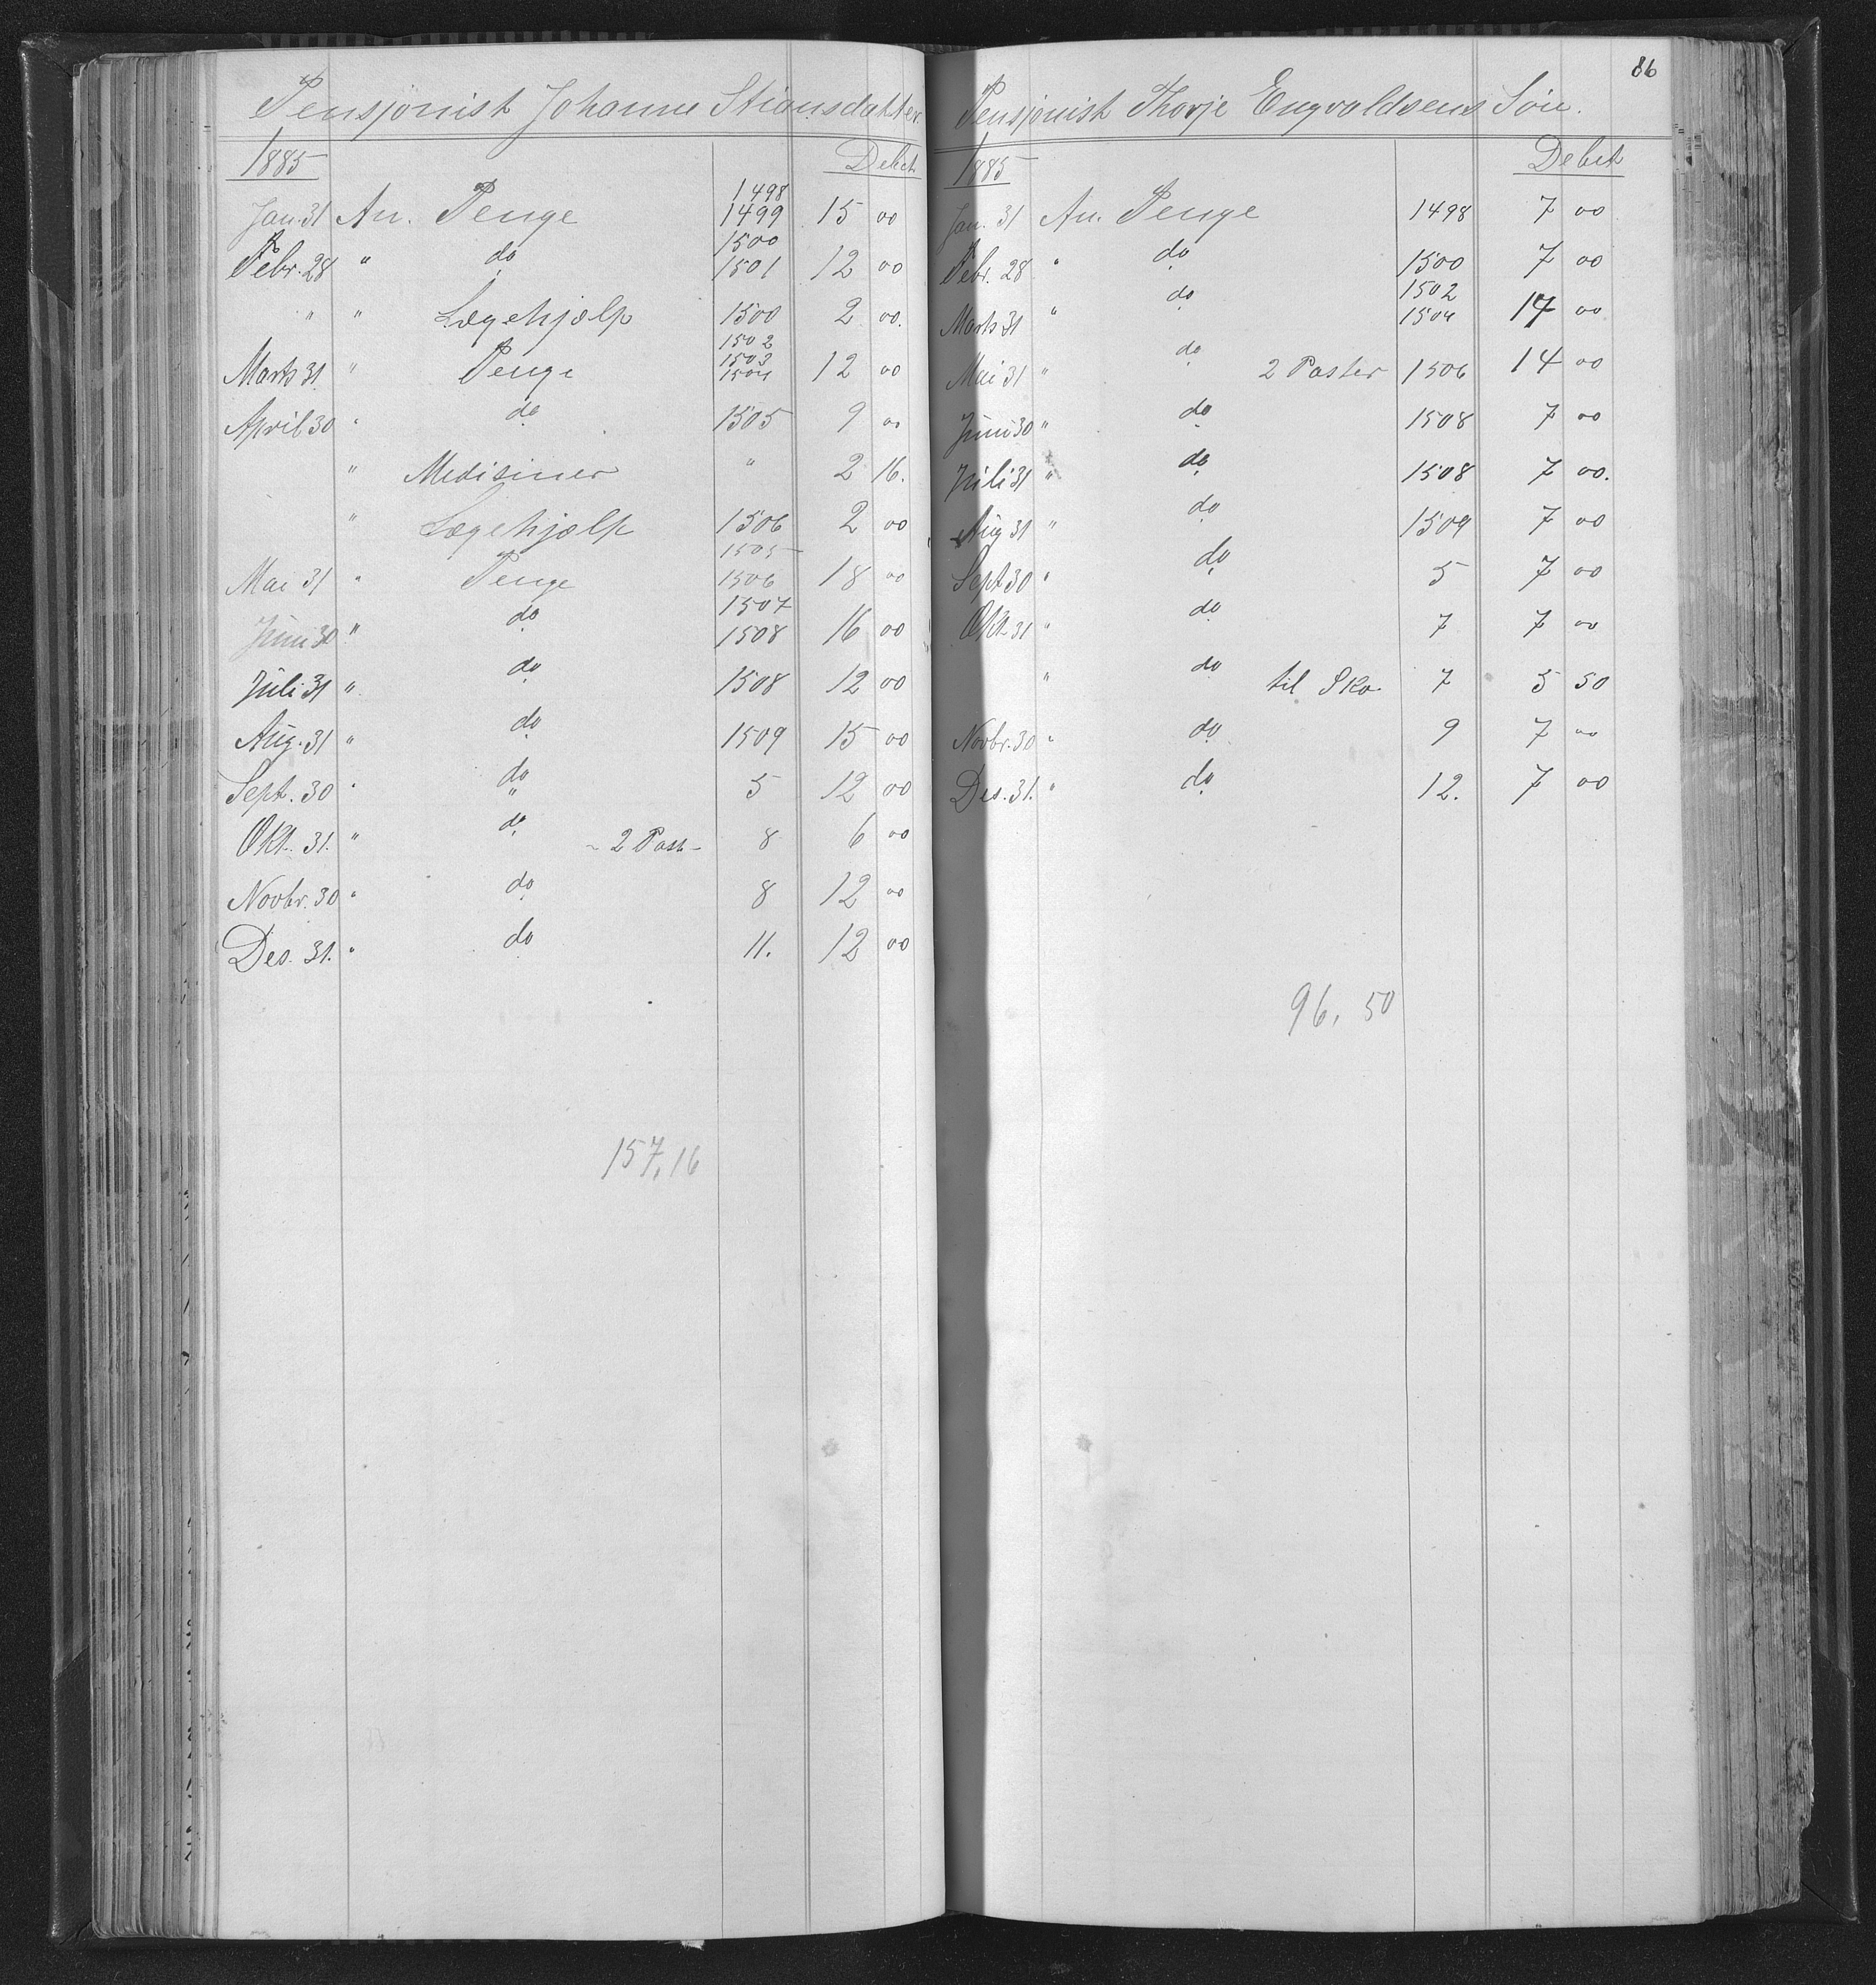 Pensjonist Johanne Stiansdatter
1885 Debet
1498
Jan. 31 An. Penge 1499 15 00
1500
Febr. 28 " do 1501 12 00
" " Lægehjælp 1500 2 00.
1502
1503
Marts 31 " Penge 1504 12 00
April 30 " do 1505 9 00
" Medisiner " 2 16.
" Lægehjælp 1506 2 00
1505
Mai 31 " Penge 1506 18 00
1507
Juni 30 " do 1508 16 00
Juli 31 " do 1508 12 00
Aug. 31 " do 1509 15 00
Sept. 30 " do 5 12 00
Okt. 31. " do - 2 Post - 8 6 00
Novbr. 30 " do 8 12 00
Des. 31. " do 11. 12 00
157,16
86
Pensjonist Thorje Engvoldsens Søn.
1885 Debet
Jan. 31 An. Penge 1498 7 00
Febr. 28 " do 1500 7 00
1502
Marts 31 " do 1504 14 00
Mai 31 " do 2 Poster 1506 14 00
Juni 30 " do 1508 7 00
Juli 31 " do 1508 7 00.
Aug 31 " do 1509 7 00
Sept 30 " do 5 7 00
Okt 31 " do 7 7 00
" do til Sko. 7 5 50
Novbr. 30 " do 9 7 00
Des. 31. " do 12. 7 00
96, 50